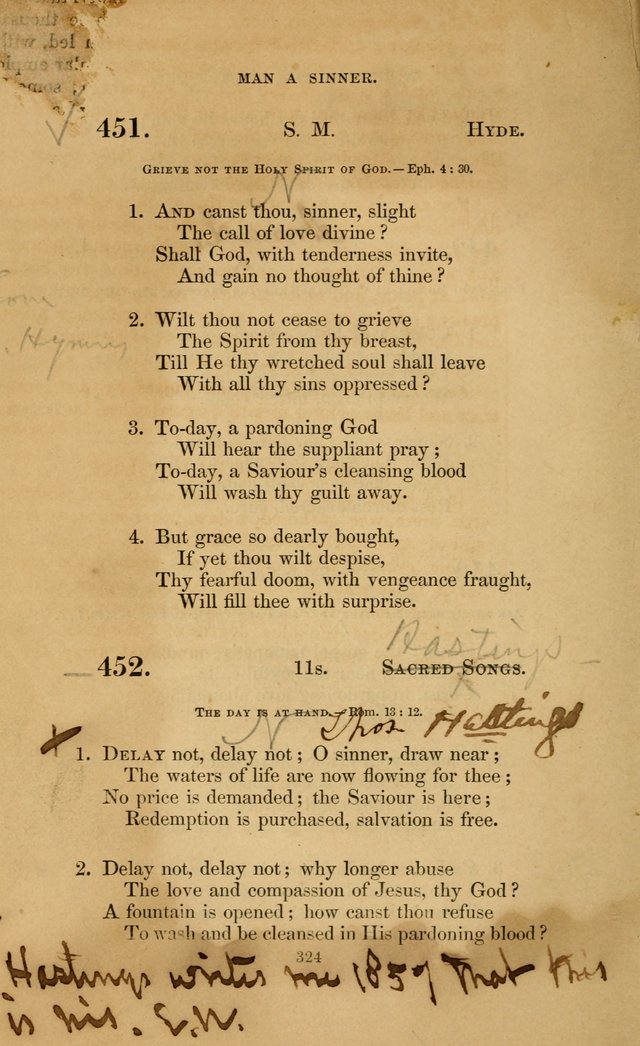 MAN A SINNER.
451. S. M. HYDE.
GRIEVE NOT THE HOLY SPIRIT OF GOD.—Eph. 4 : 30.
N
1. AND canst thou, sinner, slight
The call of love divine?
Shall God, with tenderness invite,
And gain no thought of thine?
2. Wilt thou not cease to grieve
The Spirit from thy breast,
Till He thy wretched soul shall leave
With all thy sins oppressed?
3. To-day, a pardoning God
Will hear the suppliant pray;
To-day, a Saviour's cleansing blood
Will wash thy guilt away.
4. But grace so dearly bought,
If yet thou wilt despise,
Thy fearful doom, with vengeance fraught,
Will fill thee with surprise.
Hastings
452. 11s. SACRED SONGS.
THE DAY IS AT HAND.—Rom. 13 : 12.
Thos Hastings
N
1. DELAY not, delay not; O sinner, draw near;
The waters of life are now flowing for thee;
No price is demanded; the Saviour is here;
Redemption is purchased, salvation is free.
2. Delay not, delay not; why longer abuse
The love and compassion of Jesus, thy God?
A fountain is opened; how canst thou refuse
To wash and be cleansed in His pardoning blood?
324
Hastings writes me 1857 that this
is his. E.N.